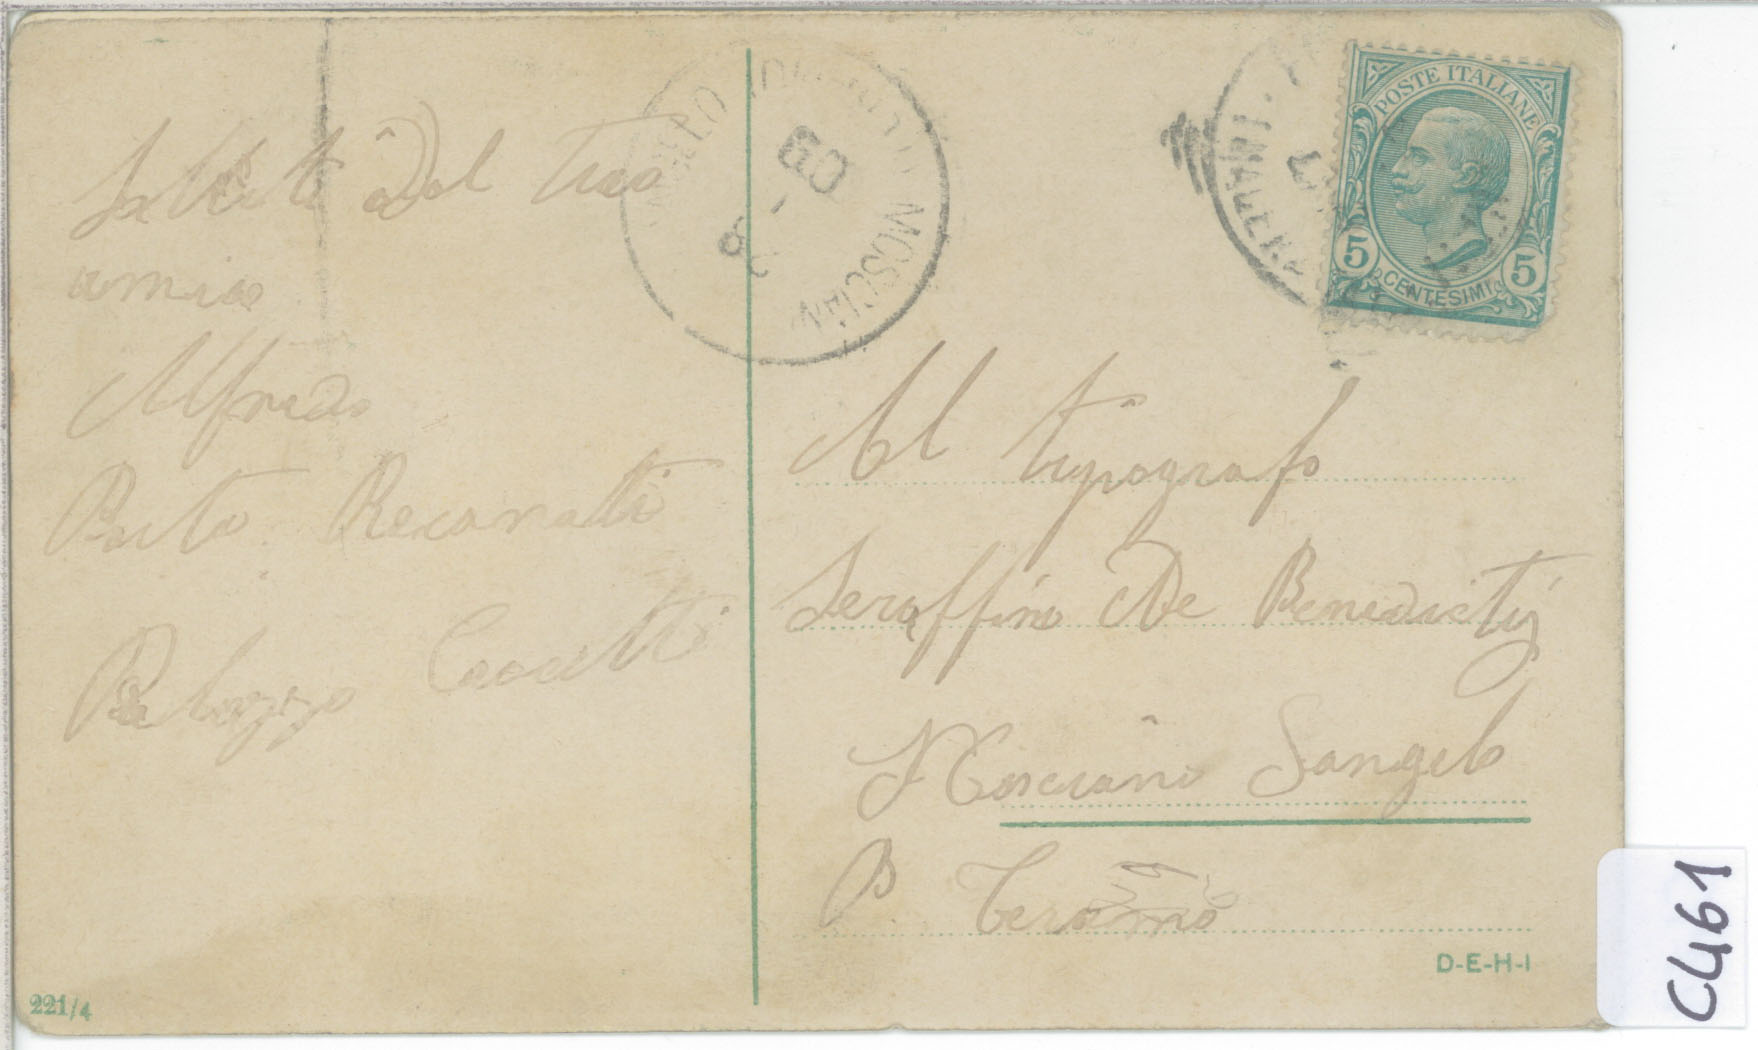 Saluti dal tuo
amico
Alfredo
Porto Recanati
Palazzo
MOSCIAN
09
POSTE ITALIANE
5 5
CENTESIMI
Al tipografo
Seraffino De Benedictis
Mosciano Sangelo
P Teramo
D-E-H-I
221/4
C4461